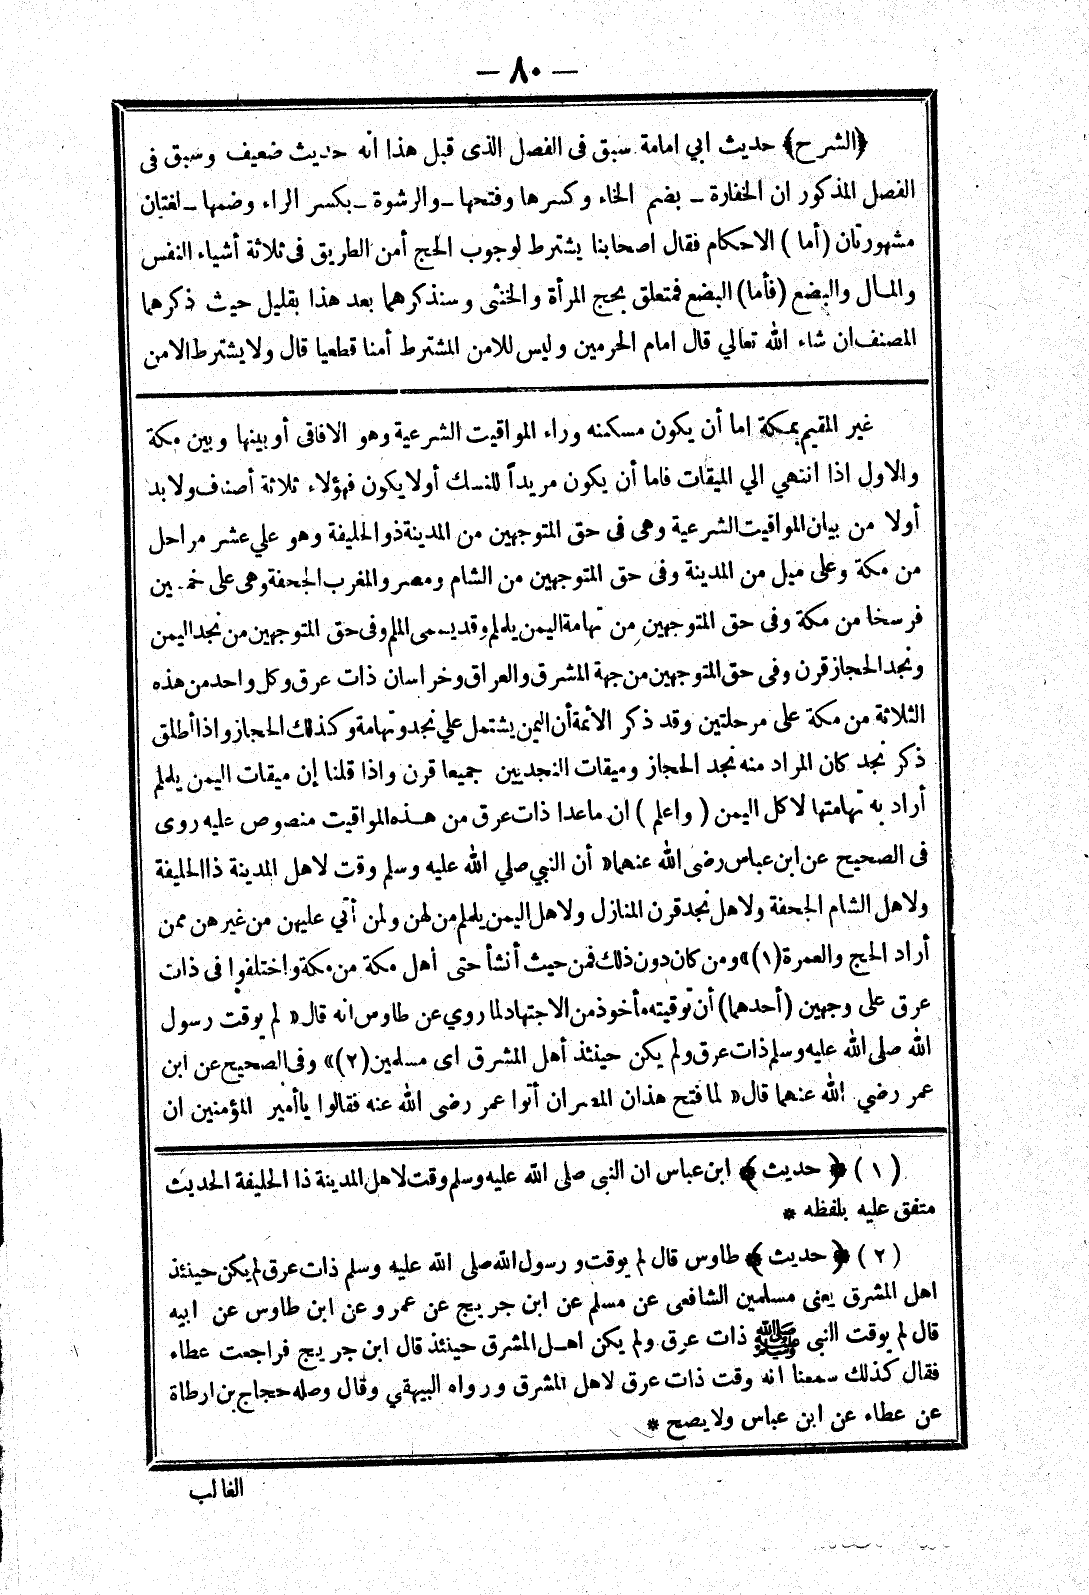 — ٨٠ —
﴿الشرح﴾ حديث ابي امامة سبق فى الفصل الذى قبل هذا انه حديث ضعيف وسبق فى
الفصل المذكور ان الخفارة ــ بضم الخاء وكسرها وفتحها ــ والرشوة ــ بكسر الراء وضمها ــ لغتان
مشهورتان (أما) الاحكام فقال اصحابنا يشترط لوجوب الحج أمن الطريق فى ثلاثة أشياء النفس
والمال والبضع (فأما) البضع فمتعلق بحج المرأة والخنثى وسنذكرهما بعد هذا بقليل حيث ذكرهما
المصنف ان شاء الله تعالي قال امام الحرمين وليس للامن المشترط أمنا قطعيا قال ولا يشترط الامن
غير المقيم بمكة اما أن يكون مسكنه وراء المواقيت الشرعية وهو الافاقى أو بينها وبين مكة
والاول اذا انتهي الي الميقات فاما أن يكون مريداً للنسك أولا يكون فهؤلاء ثلاثة أصناف ولا بد
أولا من بيان المواقيت الشرعية وهى فى حق المتوجهين من المدينة ذو الحليفة وهو علي عشر مراحل
من مكة وعلى ميل من المدينة وفى حق المتوجهين من الشام ومصر والمغرب الجحفة وهى على خمسين
فرسخا من مكة وفى حق المتوجهين من تهامة اليمن يلملم وقد يسمى الملم وفى حق المتوجهين من نجد اليمن
ونجد الحجاز قرن وفى حق المتوجهين من جهة المشرق والعراق وخراسان ذات عرق وكل واحد من هذه
الثلاثة من مكة على مرحلتين وقد ذكر الأئمة أن اليمن يشتمل علي نجد وتهامة وكذلك الحجاز واذا أطلق
ذكر نجد كان المراد منه نجد الحجاز وميقات النجديين جميعا قرن واذا قلنا إن ميقات اليمن يلملم
أراد به تهامتها لا كل اليمن (واعلم) ان ماعدا ذات عرق من هذه المواقيت منصوص عليه روى
فى الصحيح عن ابن عباس رضى الله عنهما « أن النبي صلي الله عليه وسلم وقت لاهل المدينة ذا الحليفة
ولاهل الشام الجحفة ولاهل نجد قرن المنازل ولاهل اليمن يلملم من لهن ولمن أتي عليهن من غيرهن ممن
أراد الحج والعمرة (١)» ومن كان دون ذلك فمن حيث أنشأ حتى أهل مكة من مكة واختلفوا فى ذات
عرق على وجهين (أحدهما) أن توقيته مأخوذ من الاجتهاد لما روي عن طاوس انه قال « لم يوقت رسول
الله صلى الله عليه وسلم ذات عرق ولم يكن حينئذ أهل المشرق اى مسلمين (٢)» وفى الصحيح عن ابن
عمر رضي الله عنهما قال « لما فتح هذان المصران أتوا عمر رضى الله عنه فقالوا يا أمير المؤمنين ان
(١) ﴿ حديث ﴾ ابن عباس ان النبى صلى الله عليه وسلم وقت لاهل المدينة ذا الحليفة الحديث
متفق عليه بلفظه *
(٢) ﴿ حديث ﴾ طاوس قال لم يوقت و رسول الله صلى الله عليه وسلم ذات عرق لم يكن حينئذ
اهل المشرق يعنى مسلمين الشافعى عن مسلم عن ابن جريج عن عمرو عن ابن طاوس عن ابيه
قال لم يوقت النبى ﷺ ذات عرق ولم يكن اهل المشرق حينئذ قال ابن جريج فراجعت عطاء
فقال كذلك سمعنا انه وقت ذات عرق لاهل المشرق ورواه البيهقي وقال وصله حجاج بن ارطاة
عن عطاء عن ابن عباس ولا يصح *
الغالب